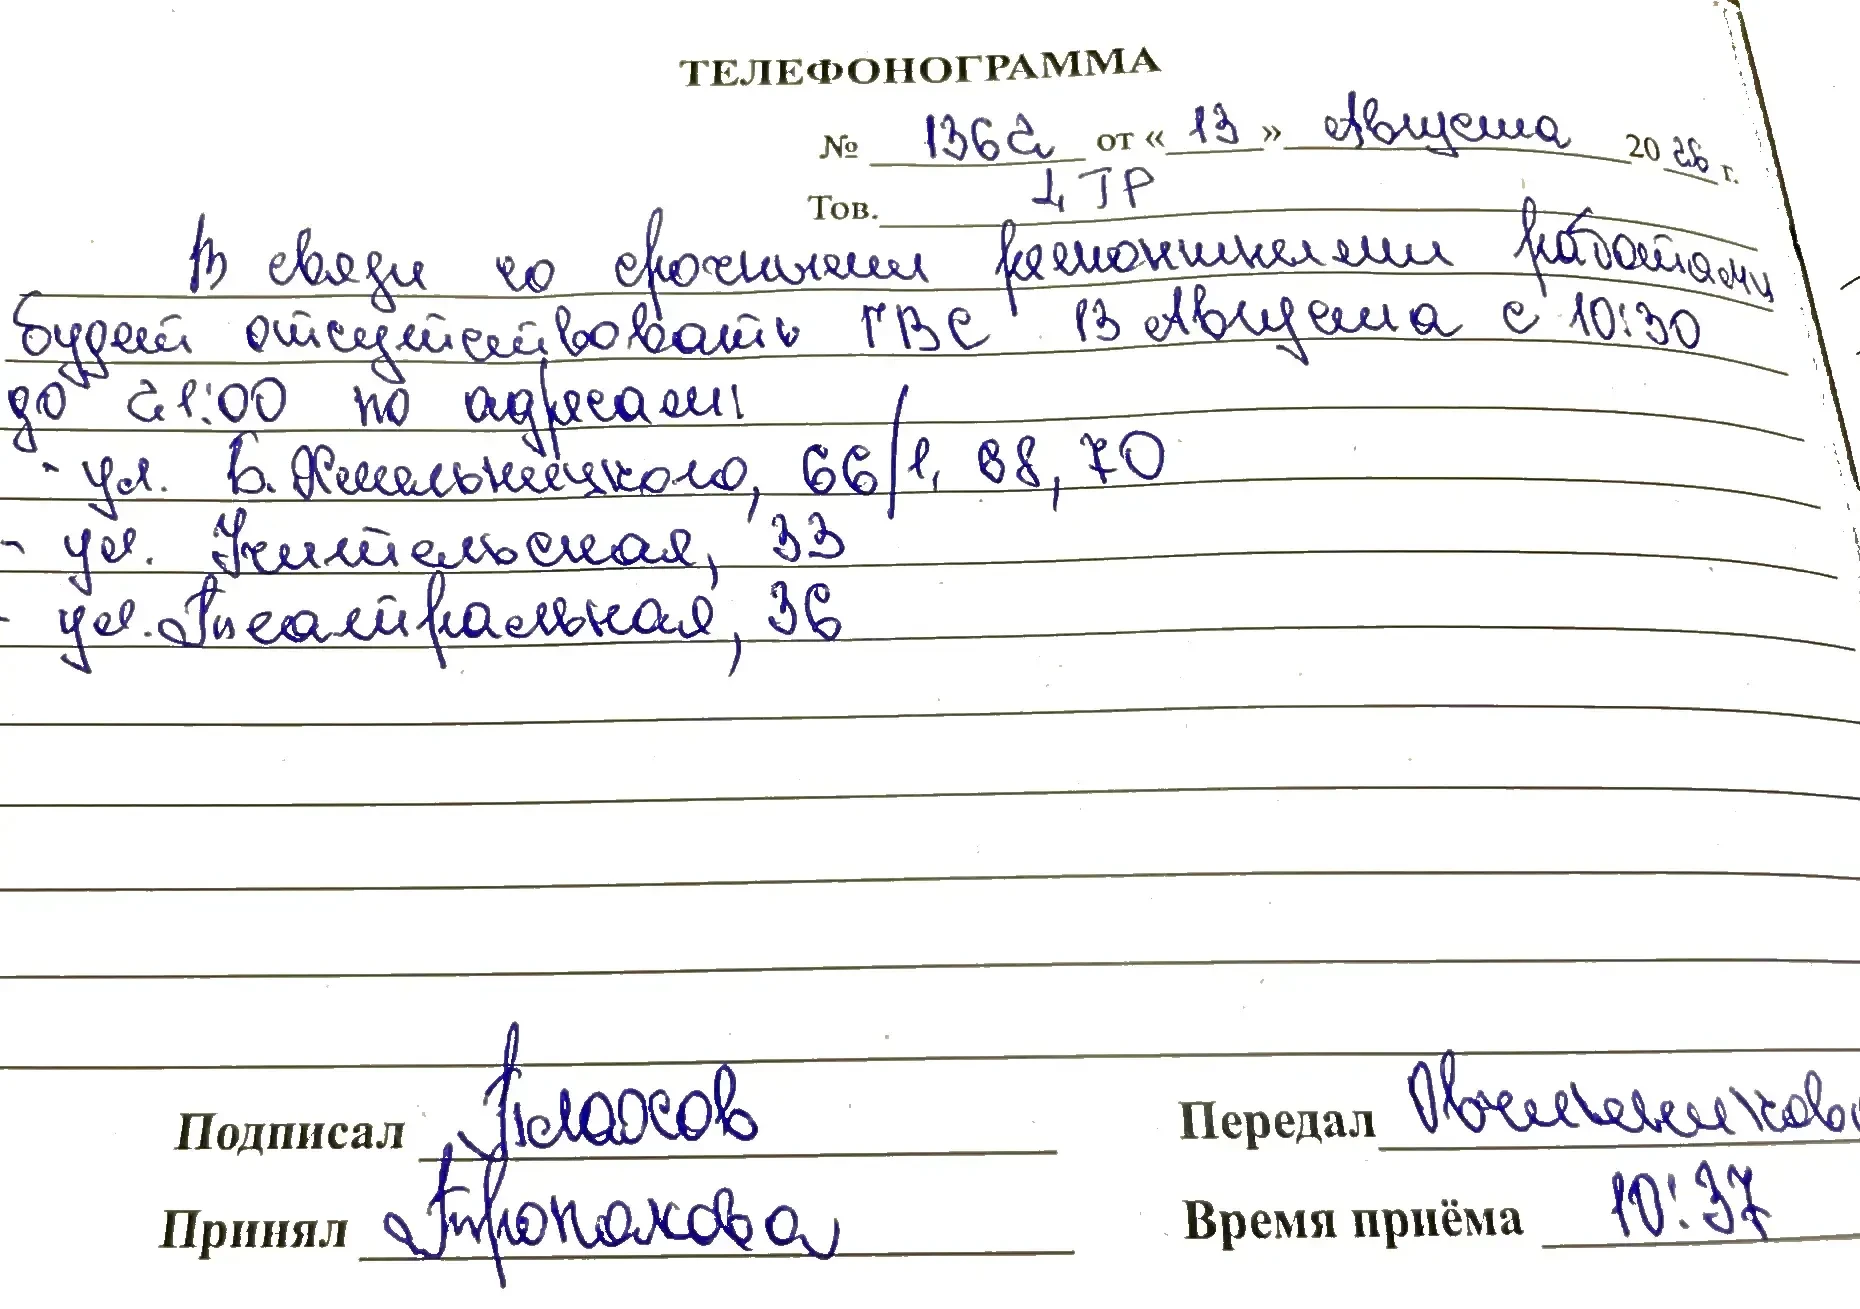 ТЕЛЕФОНОГРАММА
№ 1362 от «13» Августа 2026 г.
Тов. ЦТР
В связи со срочными ремонтными работами
будет отсутствовать ГВС 13 Августа с 10:30
до 21:00 по адресам:
- ул. Б. Хмельницкого, 66/1, 68, 70
- ул. Учительская, 33
- ул. Театральная, 36
Подписал Передал
Принял Время приёма 10:37